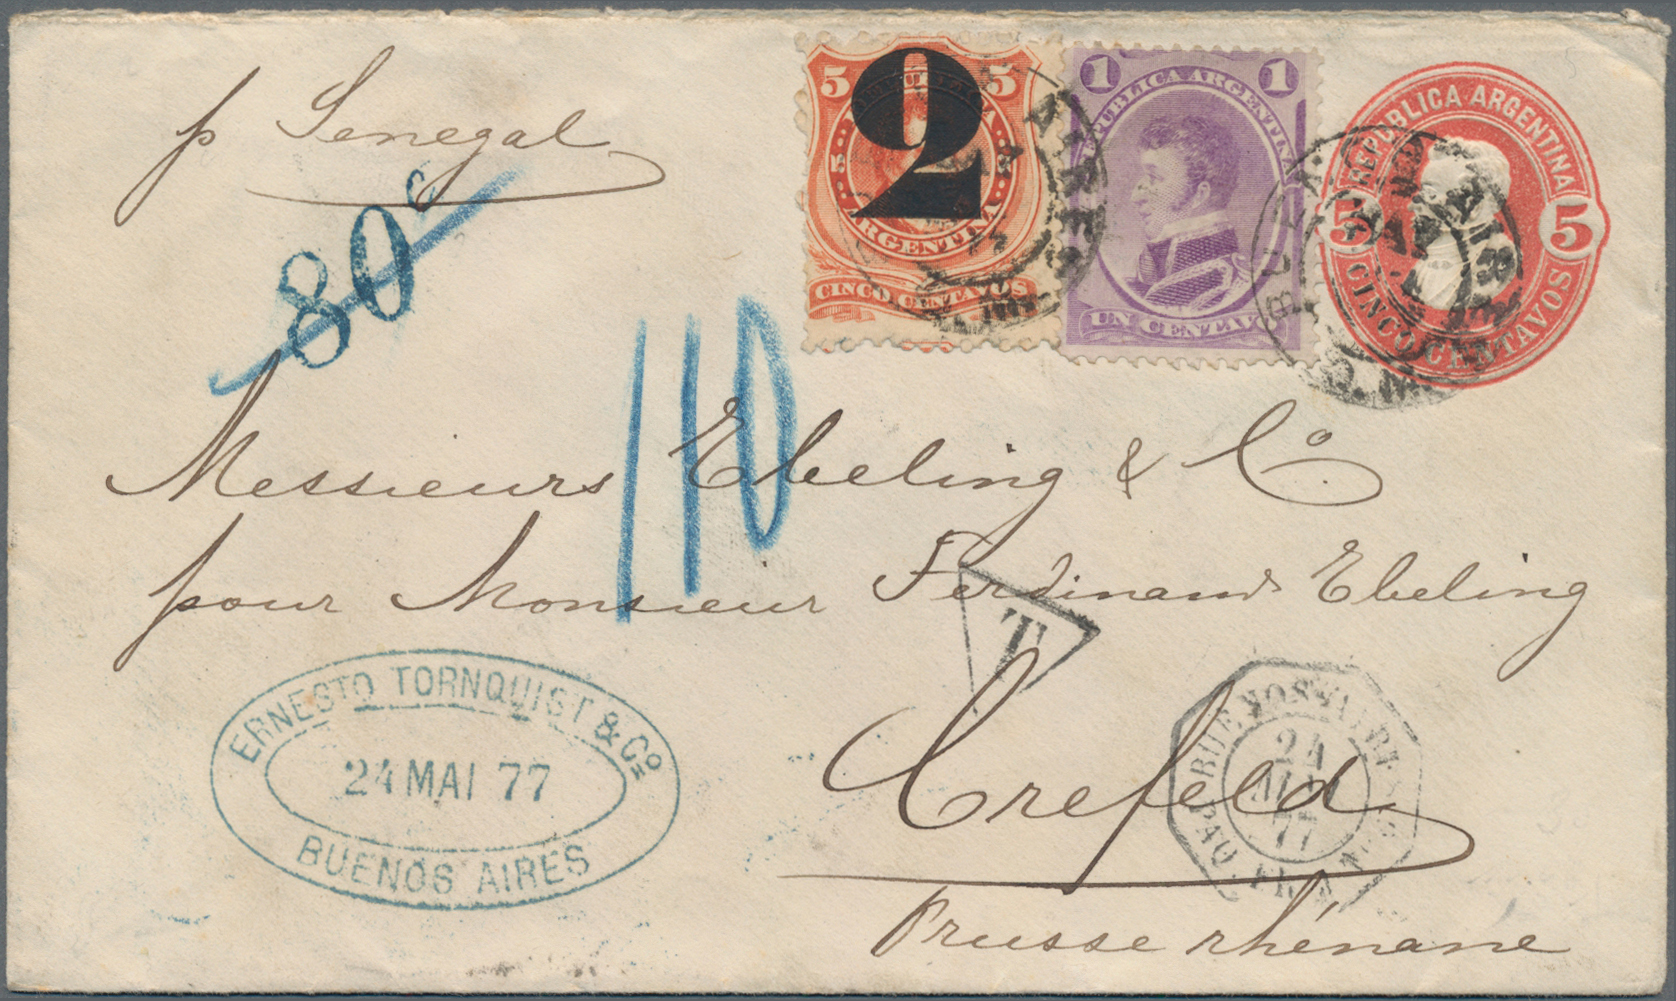 p Senegal
80 c
110
5 5
2
5 5
ARGENTINA
CINCO CENTAVOS
1 1
REPUBLICA ARGENTINA
UN CENTAVO
REPUBLICA ARGENTINA
5 5
CINCO CENTAVOS
Messieurs Ebeling & Co
pour Monsieur Ferdinand Ebeling
T
Crefeld
Prusse rhénane
ERNESTO TORNQUIST & Co
24 MAI 77
BUENOS AIRES
BUENOS AIRES
24
MAI
77
PAQ. FR.